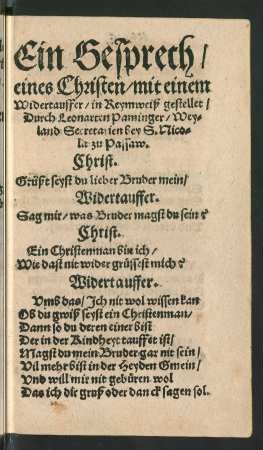 Ein Gesprech /
eines Christen / mit einem
Widertauffer / in Reymweiß gestellet /
Durch Leonarten Paminger / Wey-
land Secretarien bey S. Nico-
la zu Passaw.
Christ.
Grüßt seyst du lieber Bruder mein /
Widertauffer.
Sag mir / was Bruder magst du sein?
Christ.
Ein Christenman bin ich /
Wie dast nit wider grüssest mich?
Widertauffer.
Umb das / Ich nit wol wissen kan
Ob du gwiß seyst ein Christenman /
Dann so du deren einer bist
Der in der Kindheyt tauffet ist /
Magst du mein Bruder gar nit sein /
Vil mehr bist in der Heyden Gmein /
Und will mir nit gebüren wol
Das ich dir gruß oder danck sagen sol.